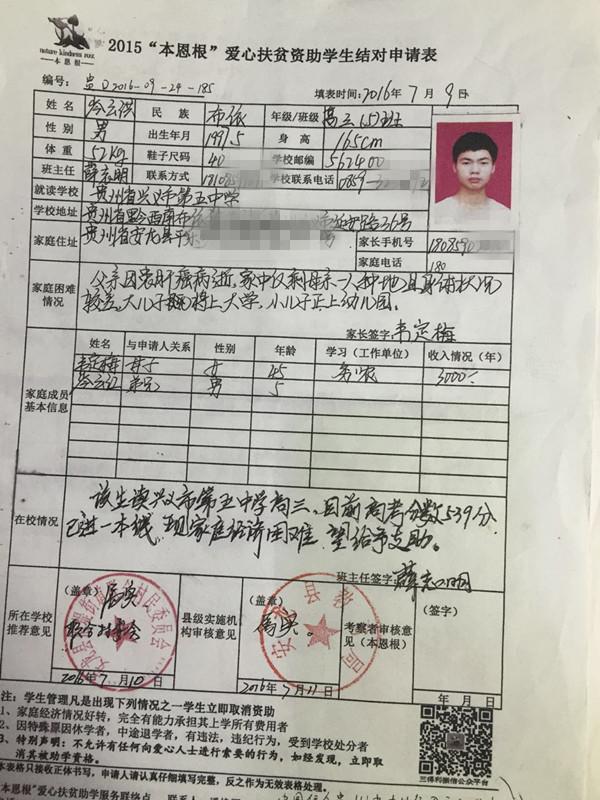 nature kindness root
本恩根
2015“本恩根”爱心扶贫资助学生结对申请表
编号: 贵D2016-09-24-185 填表时间:2016年7月9日
姓名 岑云洪 民族 布依 年级/班级 高三(5)班
性别 男 出生年月 1997.5 身高 165cm
体重 52kg 鞋子尺码 40 学校邮编 562400
班主任 薛志明 联系方式 学校联系电话 0859-
就读学校 贵州省兴义市第五中学
学校地址 贵州省黔西南布依 36号
家庭住址 贵州省安龙县平乐 号 家长手机号
家庭电话 180
家庭困难情况 父亲因患肝癌病逝,家中仅剩母亲一人种地且身体状况
较差。大儿子将上大学,小儿子正上幼儿园。
家长签字 韦定梅
家庭成员基本信息
姓名 与申请人关系 性别 年龄 学习(工作单位) 收入情况(年)
韦定梅 母子 女 45 务农 3000
岑云江 弟兄 男 5
在校情况 该生读兴义市第五中学高三,目前高考分数539分
已进一本线,现家庭经济困难,望给予支助。
班主任签字: 薛志明
所在学校推荐意见 (盖章) 属实
2016年7月10日
县级实施机构审核意见 (盖章) 属实。
2016年7月11日
考察者审核意见(本恩根) (签字)
年 月 日
注:学生管理凡是出现下列情况之一学生立即取消资助
1、家庭经济情况好转,完全有能力承担其上学所有费用者
2、因特殊原因休学者,中途退学者,有违法,违纪行为,受到学校处分者
3、特别声明:不允许有任何向爱心人士进行索要的行为,如经发现,立即取
消其被助学资格。
本表格只接收正体书写,申请人请认真仔细填写完整,反之作为无效表格处理。
三得利微信公众平台
本恩根”爱心扶贫助学服务联络点